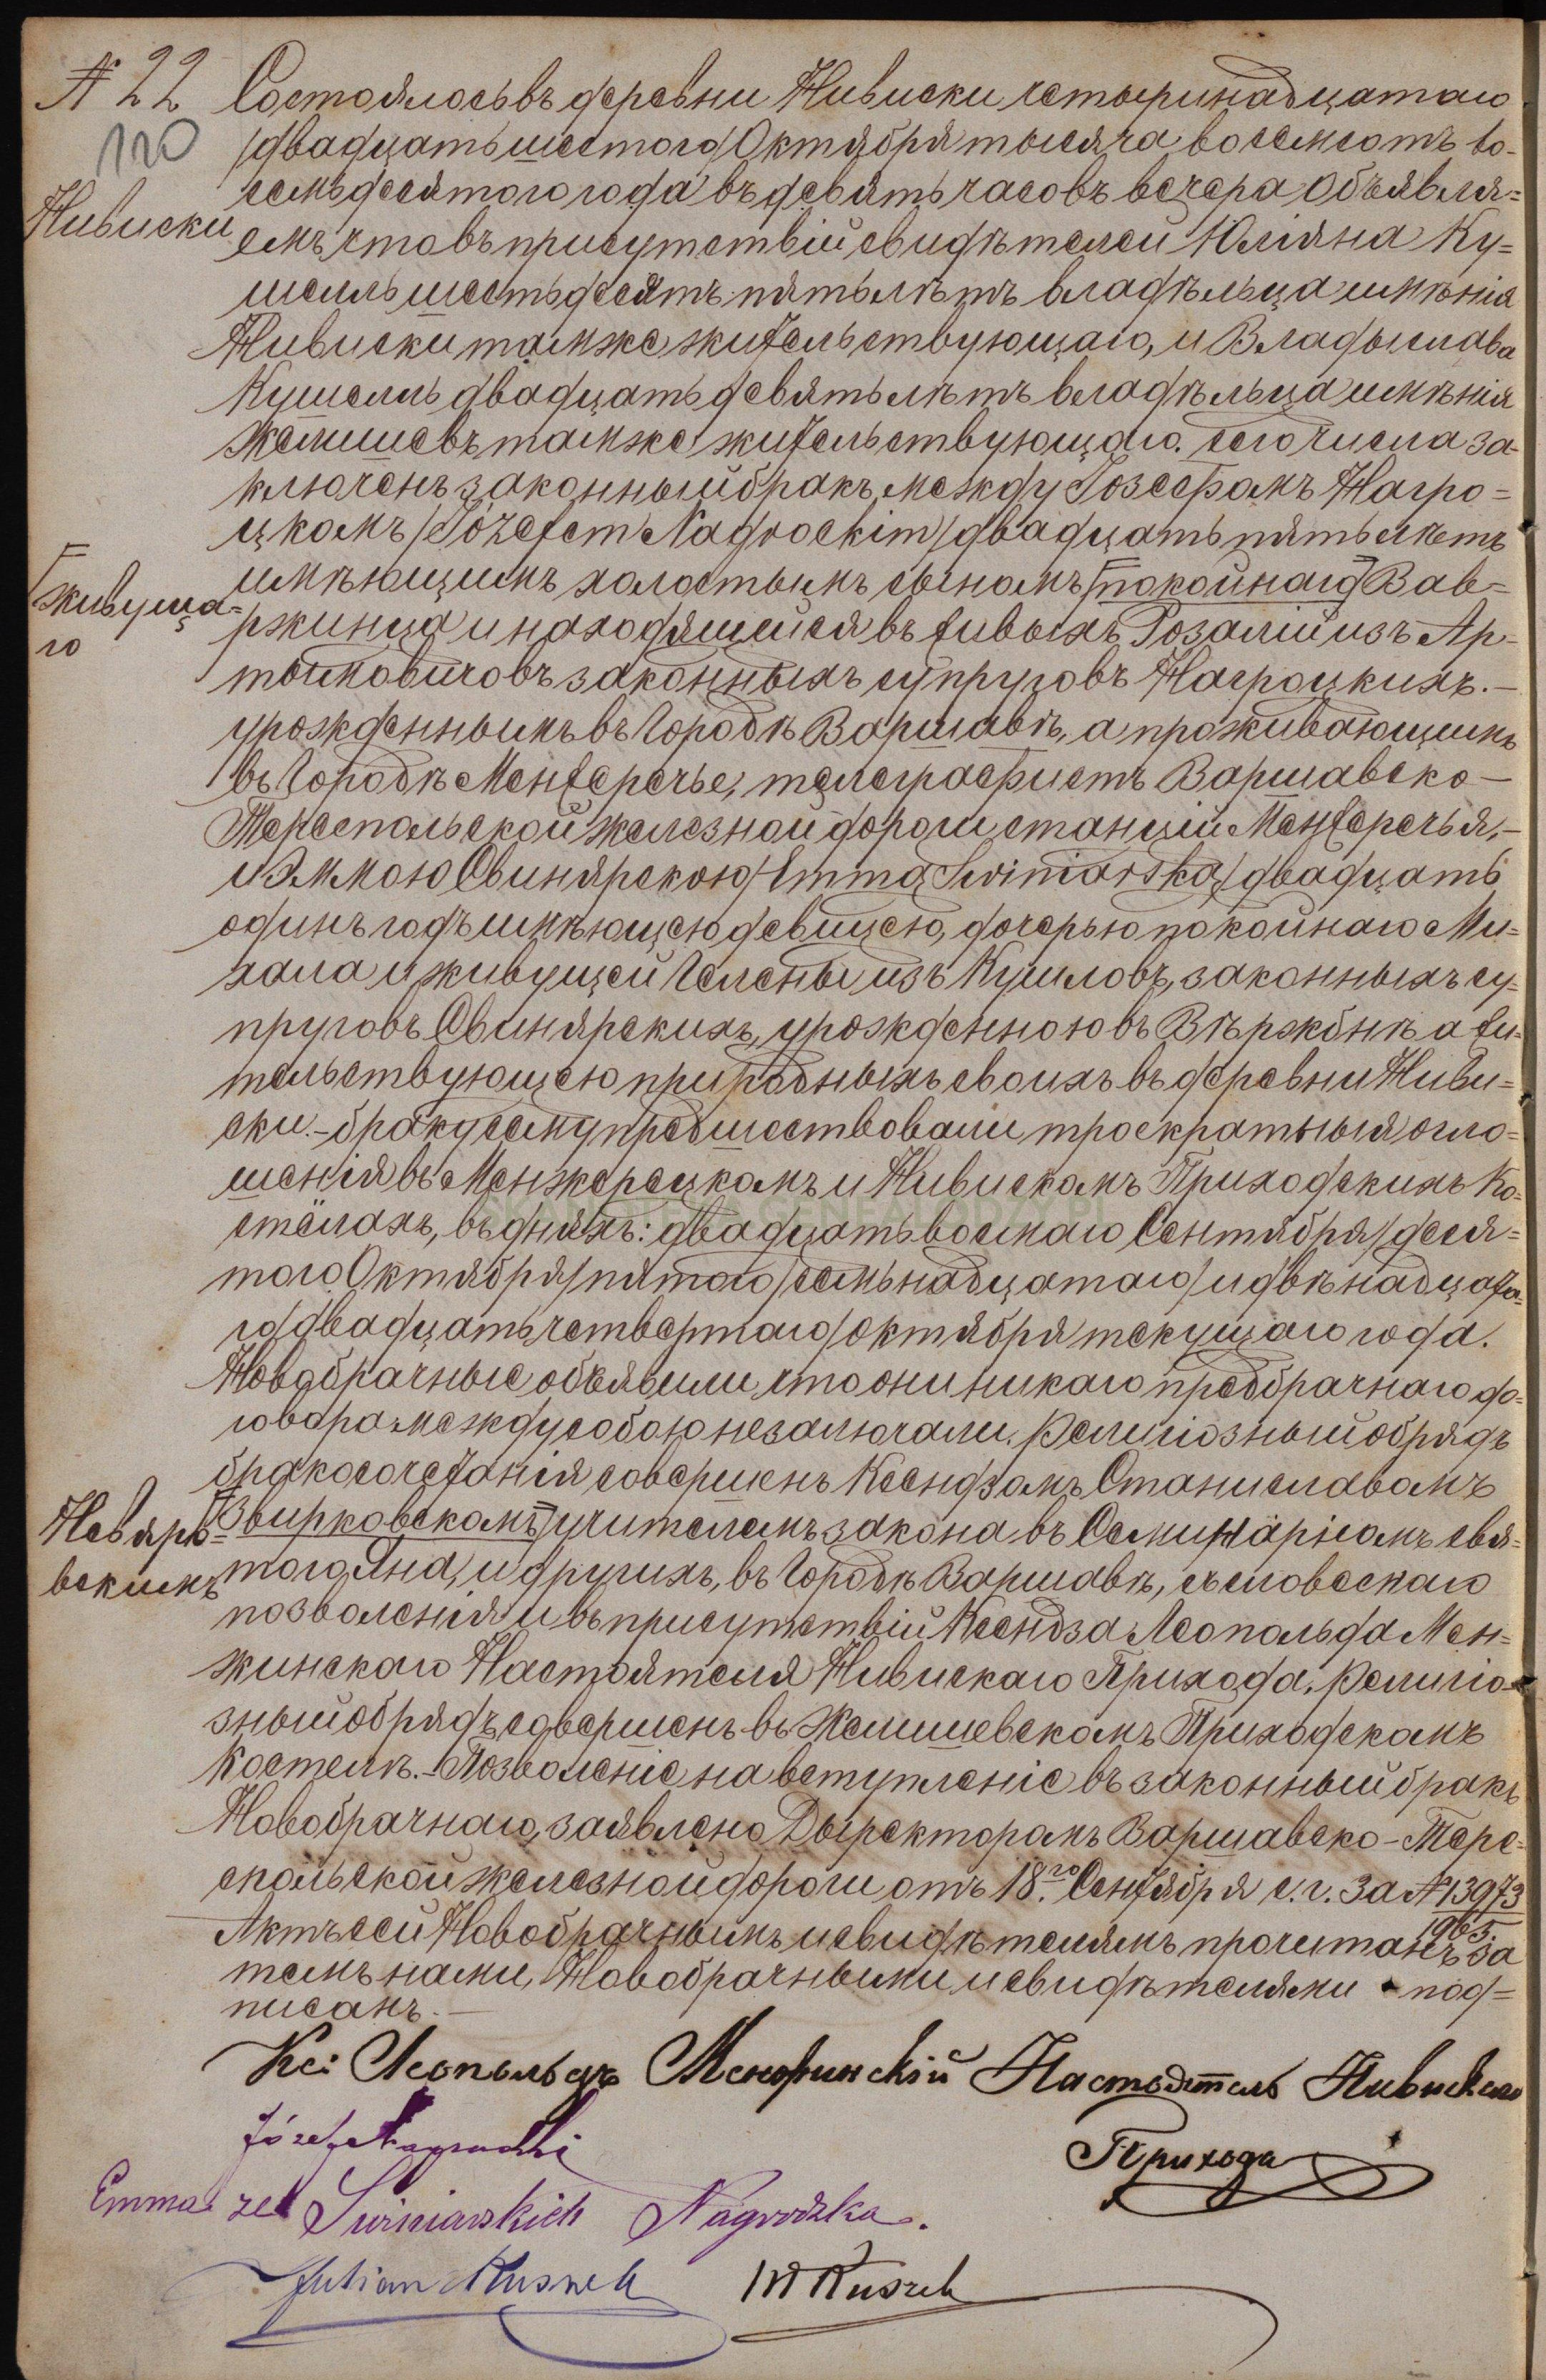 № 22 Состоялось въ деревни Нивиски четырннадцатаго
120
/двадцать шестого/ Октября тысяча восемсотъ во-
семьдесятого года въ девять часовъ вечера Объявля=
Нивиски
емъ, что въ присутствій свидѣтелей Юліяна Ку=
шелль шестьдесятъ пять лѣтъ владѣльца имѣнія
Нивиски тамже жительствующаго, и Владыслава
Кушелль двадцать девять лѣтъ владѣльца имѣнія
Желишевъ тамже жительствующаго. сего числа за-
ключенъ законный бракъ между Іозефомъ Нагро=
цкомъ /Józefem Nagrockim/ двадцать пять лѣтъ
имѣющимъ холостымъ сыномъ покойнаго Вав=
живуща=
го
ржинца и находящейся въ живыхъ Розалій изъ Ар-
тымовичовъ законныхъ супруговъ Нагроцкихъ.—
урожденнымъ въ Городѣ Варшавѣ, а проживающимъ
въ Городѣ Менжеречье, телеграфистъ Варшавско—
Тереспольской железной дороги станцій Менжеречья,—
и Эммою Свинярскою /Emmą Świniarską/ двадцать
одинъ годъ имѣющею девицею, дочерью покойнаго Ми=
хала и живущей Гелены изъ Кушловъ, законныхъ су=
пруговъ Свинярскихъ, урожденною въ Вѣржбнѣ а жи=
тельствующею при родныхъ своихъ въ деревни Ниви=
ски.- браку сему предшествовали троекратныя огло=
шенія въ Менжерецкомъ и Нивискомъ Приходскихъ Ко=
стёлахъ, въ дняхъ: двадцать восмаго Сентября /деся=
того Октября/ пятого /семьнадцатаго/ и двѣнадцата=
го /двадцать четвертаго/ октября текущаго года.
Новобрачные объявили, что они никаго предбрачнаго до=
говора между собою незалючали. Религіозный обрядъ
бракосочетанія совершенъ Ксендзомъ Станиславомъ
Невяро=
вскимъ
Звирковскомъ учителемъ закона въ Семинаріомъ свя=
того Яна, и другихъ, въ Городѣ Варшавѣ, съ словескаго
позволенія и въ присутствій Ксендза Леопольда Мен=
жинскаго Настоятеля Нивискаго Прихода. Религіо-
зный обрядъ совершенъ въ Желишевскомъ Приходскомъ
Костелѣ.- Позволеніе на вступленіе въ законный бракъ
Новобрачнаго, заявлено Дыректоромъ Варшавско-Тере=
спольской железной дороги отъ 18.го Сентября с.г. За № 13973
1965.
Актъ сей Новобрачнымъ и свидѣтелямъ прочитанъ за
темъ нами, Новобрачными и свидѣтелями под=
писанъ.—
Кс: Леопольдъ Менжинскій Настоятель Нивискаго
Прихода
Józef Nagrodzki
Emma ze Świniarskich Nagrodzka.
Julian Kuszell W Kuszell
SKANOTEKA.GENEALODZY.PL